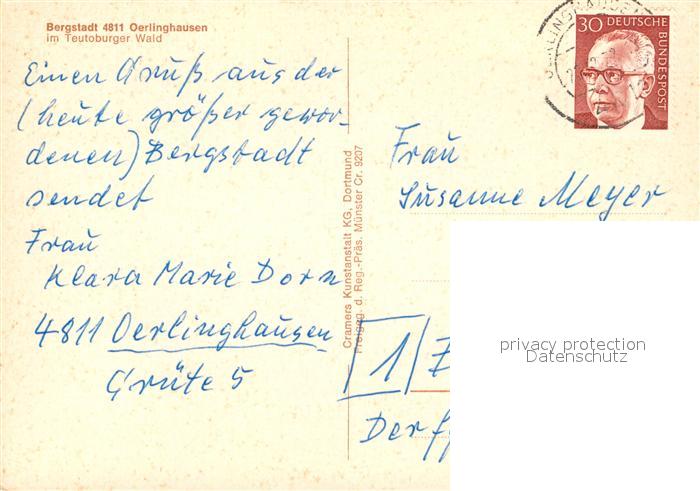 Bergstadt 4811 Oerlinghausen
im Teutoburger Wald
Einen Gruß aus der
(heute größer gewor-
denen) Bergstadt
sendet
Frau
Klara Marie Dorn
4811 Oerlinghausen
Grüte 5
Cramers Kunstanstalt KG, Dortmund
Freigeg. d. Reg.-Präs. Münster Cr. 9207
30 DEUTSCHE
BUNDESPOST
Frau
Susanne Meyer
1
privacy protection
Datenschutz